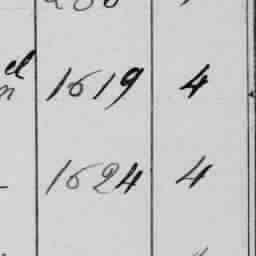 1619 4
1624 4